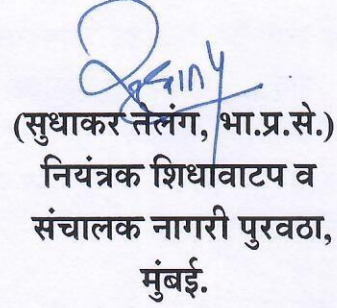 (सुधाकर तेलंग, भा.प्र.से.)
नियंत्रक शिधावाटप व
संचालक नागरी पुरवठा,
मुंबई.